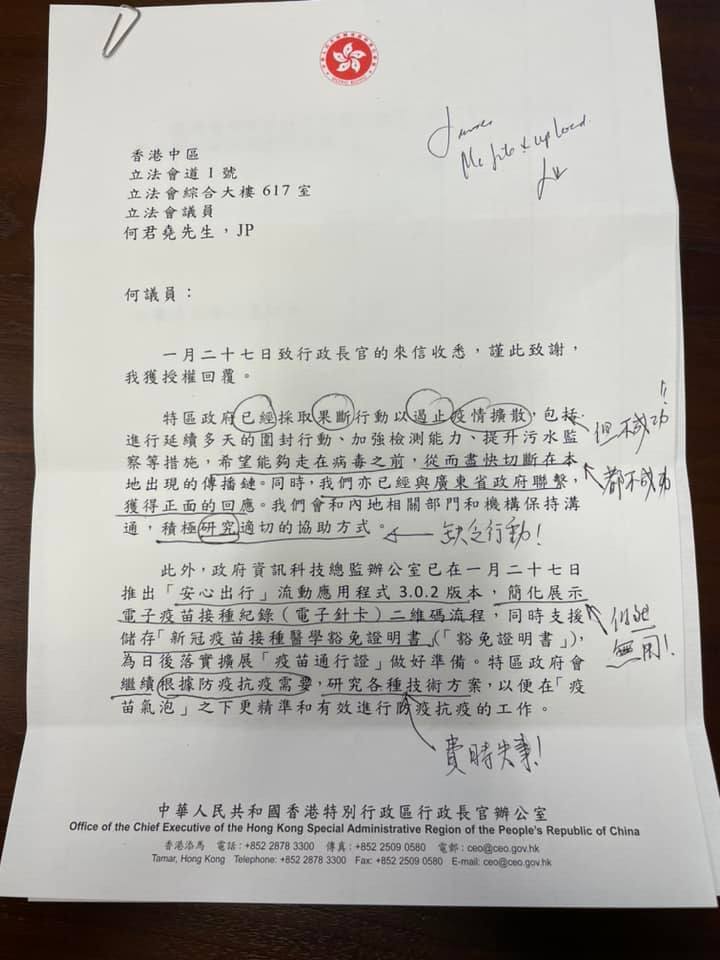 James
香港中區
立法會道 1 號
立法會綜合大樓 617 室
立法會議員
何君堯先生，JP
何議員：
一月二十七日致行政長官的來信收悉，謹此致謝，
我獲授權回覆。
特區政府已經採取果斷行動以遏止疫情擴散，包括
進行延續多天的圍封行動、加強檢測能力、提升污水監
察等措施，希望能夠走在病毒之前，從而盡快切斷在本
地出現的傳播鏈。同時，我們亦已經與廣東省政府聯繫，
獲得正面的回應。我們會和內地相關部門和機構保持溝
通，積極研究適切的協助方式。
但不成功!!
都不成功
缺乏行動！
此外，政府資訊科技總監辦公室已在一月二十七日
推出「安心出行」流動應用程式 3.0.2 版本，簡化展示
電子疫苗接種紀錄（電子針卡）二維碼流程，同時支援
儲存「新冠疫苗接種醫學豁免證明書」（「豁免證明書」），
為日後落實擴展「疫苗通行證」做好準備。特區政府會
繼續根據防疫抗疫需要，研究各種技術方案，以便在「疫
苗氣泡」之下更精準和有效進行防疫抗疫的工作。
無用！
費時失事！
中華人民共和國香港特別行政區行政長官辦公室
Office of the Chief Executive of the Hong Kong Special Administrative Region of the People's Republic of China
香港添馬 電話：+852 2878 3300 傳真：+852 2509 0580 電郵：ceo@ceo.gov.hk
Tamar, Hong Kong Telephone: +852 2878 3300 Fax: +852 2509 0580 E-mail: ceo@ceo.gov.hk